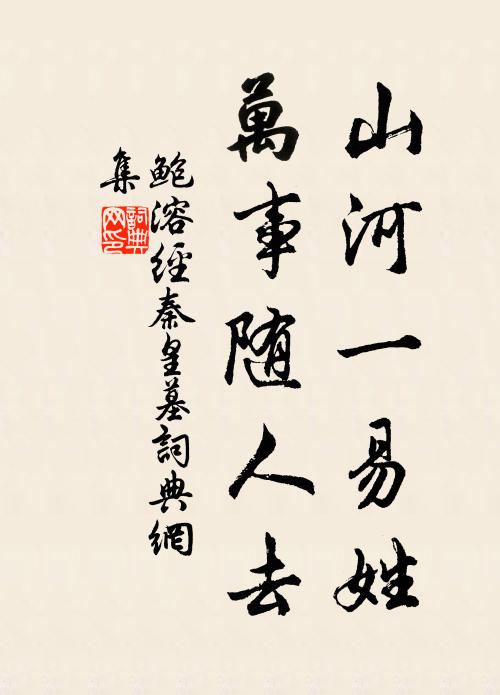 山河一易姓
萬事随人去
鲍溶經秦皇墓詞典網
集
詞典
网印